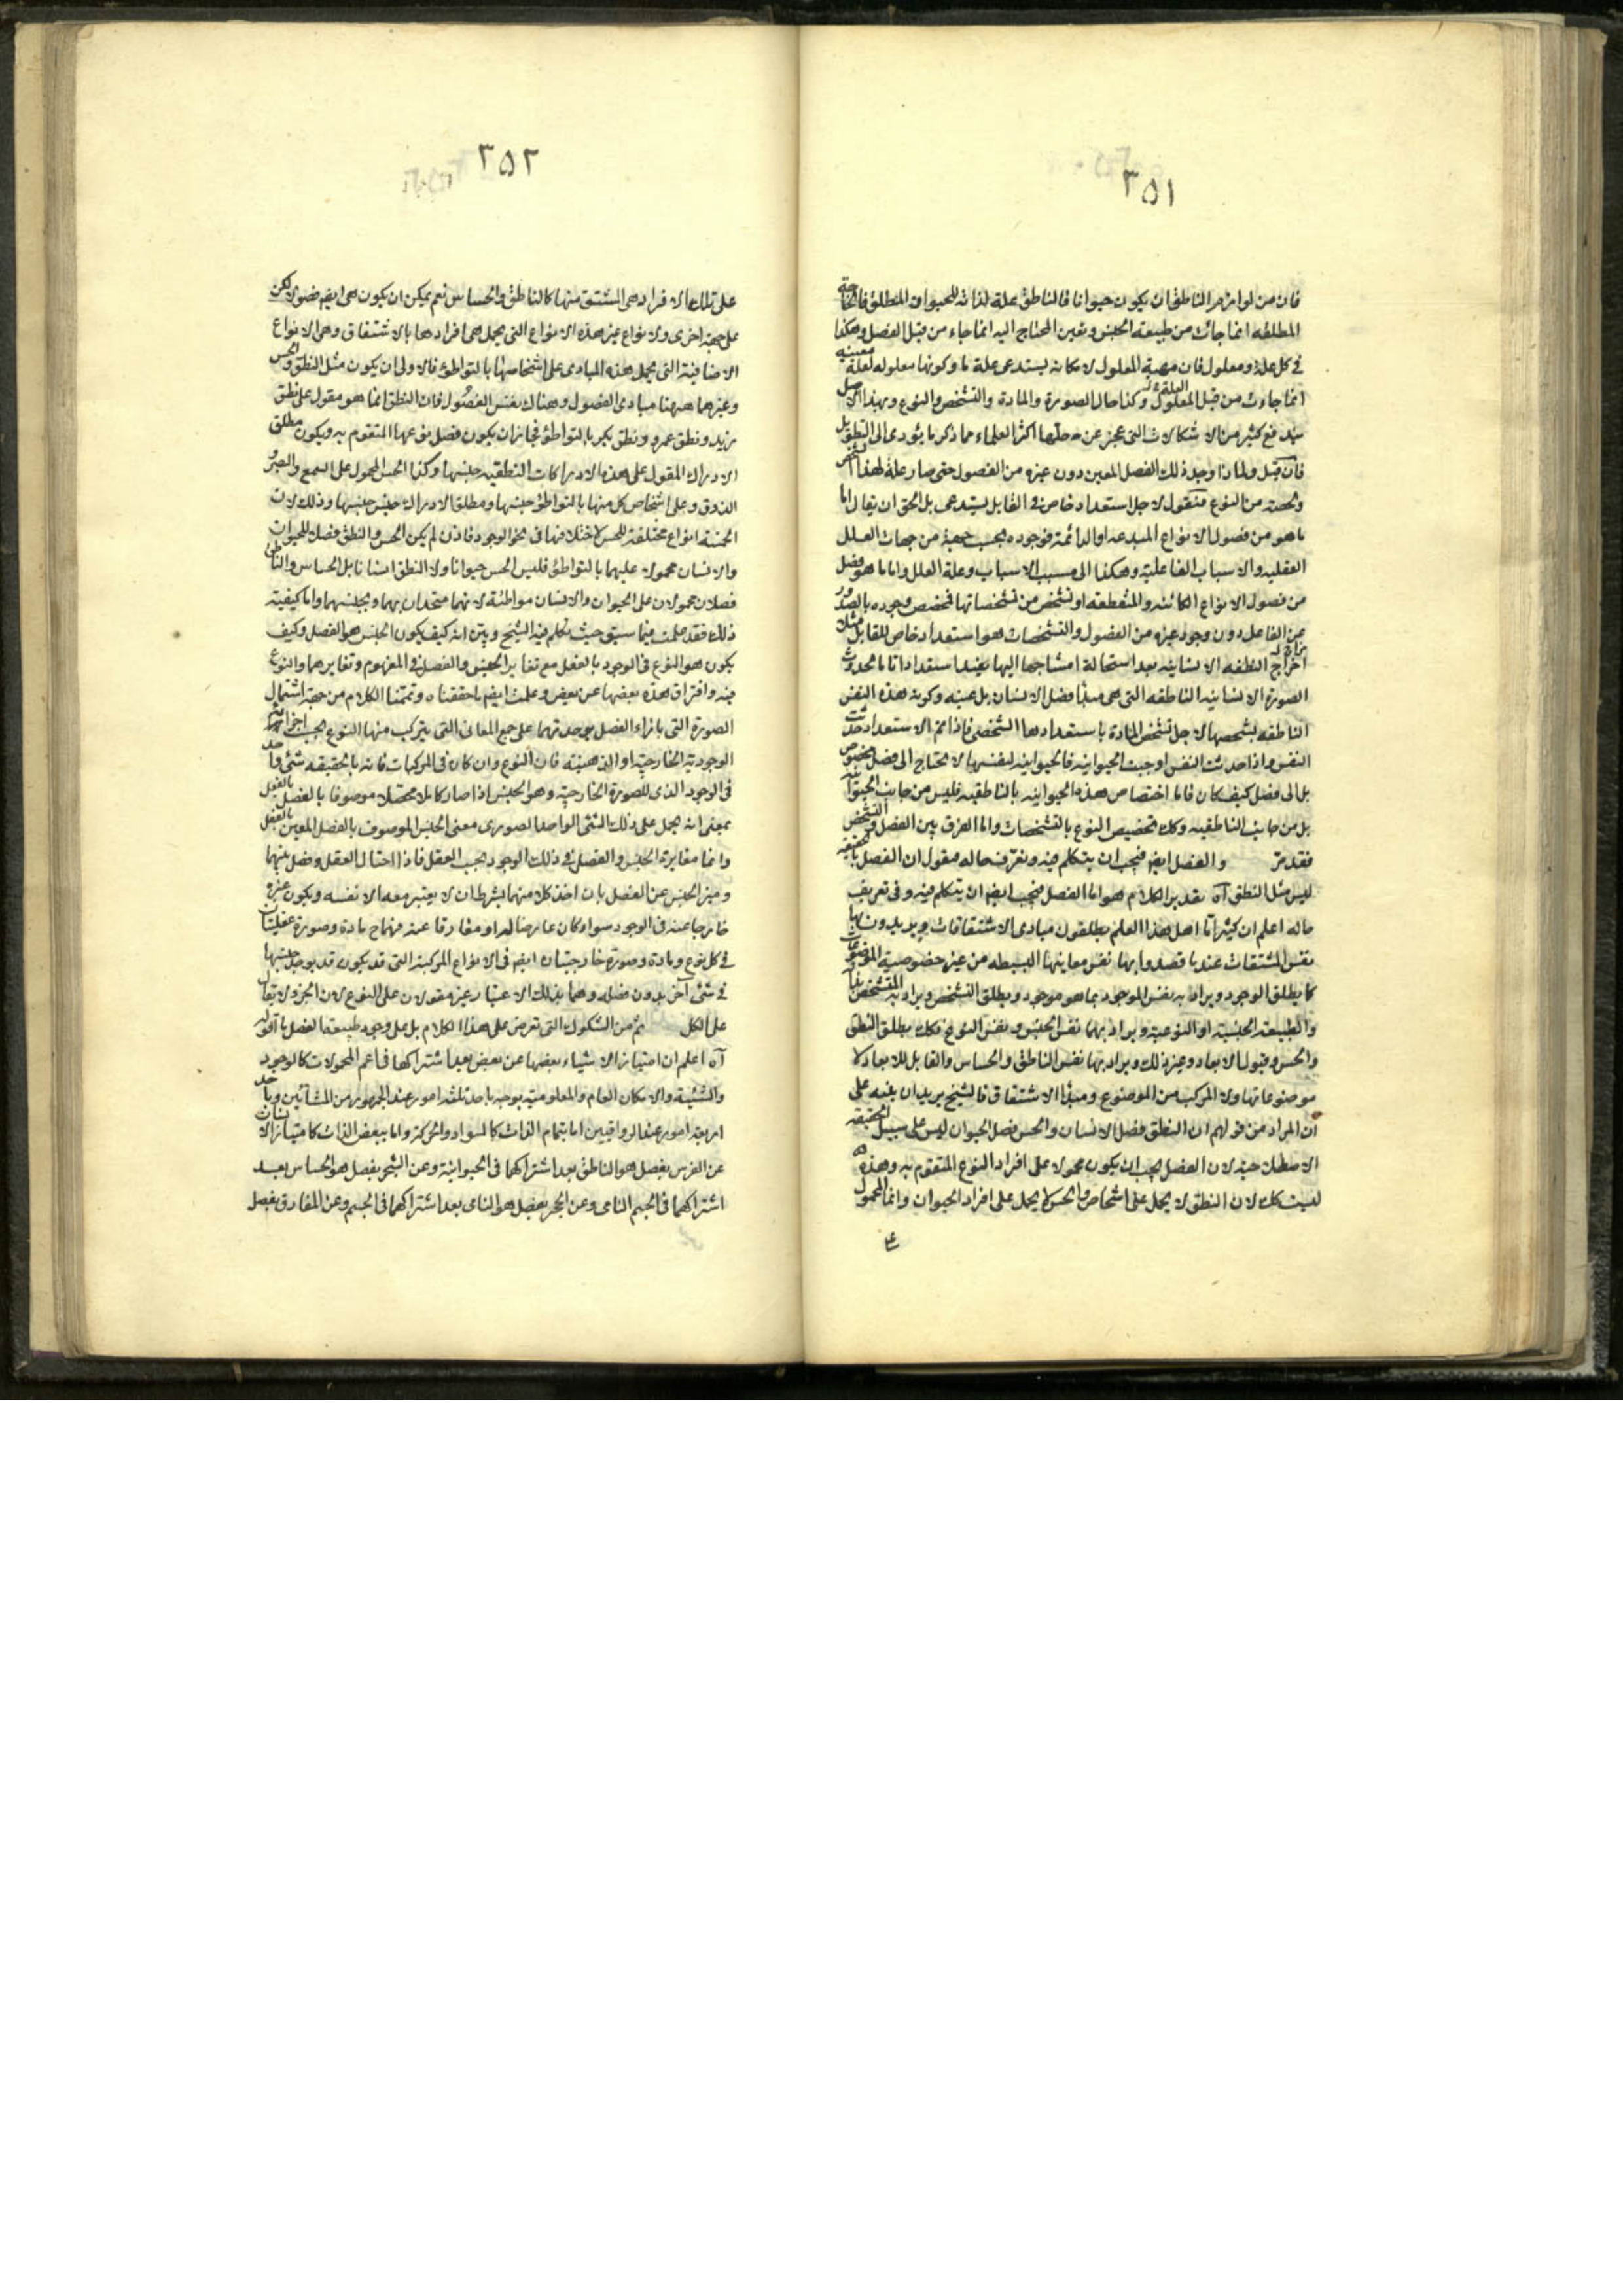 ٣٥١
فان من لوازم الناطق ان يكون حيوانا فالناطق علة لذاته للحيوان المطلق فالحاجة
المطلقه انما جائت من طبيعة الجنس وتعين المحتاج اليه انما جاء من قبل الفصل وهكذا
فى كل علة ومعلول فان مهية المعلول لامكانه يستدعى علة ما وكونها معلوله لعلة معينه
انما جاءت من قبل العلة لا المعلول وكذا حال الصورة والمادة والتشخص والنوع وبهذا الاصل
يندفع كثير من الاشكالات التى عجز عن حلها اكثر العلماء مما ذكر ما يؤدى الى التطويل
فان قيل ولماذا وجد ذلك الفصل المعين دون غيره من الفصول حتى صار علة لهذا
من النوع فنقول لاجل استعداد خاص فى القابل يستدعى بل الحق ان يقال اما
ما هو من فصول الانواع المبدعه او الدائمة فوجوده بحسب جهة من جهات العلل
العقليه والاسباب الفاعلية وهكذا الى مسبب الاسباب وعلة العلل واما ما هو فصل
من فصول الانواع الكائنه والمنقطعه او تشخص من تشخصاتها فتخصص وجوده بالصدور
عن الفاعل دون وجود غيره من الفصول والتشخصات هو استعداد خاص للقابل مثلا
النطفه الانسانيه بعد استحالة امشاجها اليها يفيد استعدادا تاما لحدوث
الصورة الانسانيه الناطقه التى هى مبدأ فصل الانسان بل عينه وكون هذه النفس
الناطقه بشخصها لاجل تشخص المادة باستعدادها الشخصى فاذا تم الاستعداد حدثت
النفس واذا حدثت النفس اوجبت الحيوانيه فالحيوانيه لنفسها لا تحتاج الى فصل بخصوص
بل الى فصل كيف كان فاما اختصاص هذه الحيوانيه بالناطقيه فليس من جانب الحيوانيه
بل من جانب الناطقيه وكك تخصيص النوع بالتشخصات واما الفرق بين الفصل والتشخص
فقد مرّ والفصل ايضم فيجب ان يتكلم فيه ونعرف حاله فنقول ان الفصل بالحقيقه
ليس مثل النطق آه تقدير الكلام هو اما الفصل فيجب ايضم ان يتكلم فيه وفى تعريف
حاله اعلم ان كثيرا ما اهل هذا العلم يطلقون مبادى الاشتقاقات ويريدون بها
نفس المشتقات عندما قصدوا بها نفس معاينها البسيطه من غير خصوصية الموضوعات
كما يطلق الوجود ويراد به نفس الموجود بما هو موجود ويطلق التشخص ويراد به المتشخص بذاته
والطبيعة الجنسية او النوعية ويراد بهما نفس الجنس ونفس النوع فكك يطلق النطق
والحس وقبول الابعاد وغير ذلك ويراد بها نفس الناطق والحساس والقابل للابعاد لا
موضوعاتها ولا المركب من الموضوع ومبدأ الاشتقاق فالشيخ يريد ان ينبه على
ان المراد من قولهم ان النطق فصل الانسان والحس فصل الحيوان ليس على سبيل الحقيقه
الاصطلاحيه لان الفصل يجب ان يكون محمولا على افراد النوع المتقوم به وهذه
ليست كك لان النطق لا يحمل على اشخاص والحس لا يحمل على افراد الحيوان وانما المحمول
٣٥٢
على تلك الافراد هى المشتق منها كالناطق والحساس نعم يمكن ان يكون هى ايضم فصولا لكن
على جهة اخرى ولانواع غير هذه الانواع التى يحمل هى افرادها بالاشتقاق وهى الانواع
الاضافية التى يحمل هذه المبادى على اشخاصها بالتواطئ فالاولى ان يكون مثل النطق والحس
وغيرهما ههنا مبادى الفصول وهناك نفس الفصول فان النطق انما هو مقول على نطق
زيد ونطق عمرو ونطق بكر بالتواطئ فجاز ان يكون فصل نوعها المتقوم به ويكون مطلق
الادراك المقول على هذه الادراكات النطقيه جنسها وكذا الحس المحمول على السمع والبصر و
الذوق وعلى اشخاص كل منها بالتواطئ جنسها ومطلق الادراك جنس جنسها وذلك لان
الخمسة انواع مختلفة للحس لاختلافها فى نحو الوجود فاذن لم يكن الحس والنطق فصلا للحيوان
والانسان محمولا عليهما بالتواطئ فليس الحس حيوانا ولا النطق انسانا بل الحساس والناطق
فصلان محمولان على الحيوان والانسان مواطئة لانهما متحدان بهما وبجنسهما واما كيفية
ذلك فقد علمت فيما سبق حيث تكلم فيه الشيخ وبيّن انه كيف يكون الجنس هو الفصل وكيف
يكون هو النوع فى الوجود بالفعل مع تغاير الجنس والفصل فى المفهوم وتغايرهما والنوع
فيه وافتراق هذه بعضها عن بعض وعلمت ايضم ما حققناه وتممنا الكلام من جهة اشتمال
الصورة التى بازاء الفصل بوحدتها على جمع المعانى التى يتركب منها النوع بحسب اجزائه
الوجودية الخارجية او الذهنية فان النوع وان كان فى المركبات فانه بالحقيقه شئ واحد
فى الوجود الذى للصورة الخارجية وهو الجنس اذا صار كاملا محصلا موصوفا بالفصل بالفعل
بمعنى انه يحمل على ذلك الشئ الواحد الصورى معنى الجنس الموصوف بالفصل المعين بالفعل
وانما مغايرة الجنس والفصل فى ذلك الوجود بحسب العقل فاذا احتال العقل وفصل بينهما
وميز الجنس عن الفصل بان اخذ كلا منهما بشرط ان لا يعتبر معه الا نفسه ويكون غيره
خارجا عنه فى الوجود سواء كان عارضا له او مفارقا عنه فهما ح مادة وصورة عقليتان
فى كل نوع ومادة وصورة خارجيتان ايضم فى الانواع المركبة التى قد يكون قد يوجد جنسها
فى شئ آخر بدون فصله وهما بذلك الاعتبار غير مقولان على النوع لان الجزء لا يقال
على الكل ثم من الشكوك التى تعرض على هذا الكلام بل على وجود طبيعة الفصل ما اقوله
آه اعلم ان امتياز الاشياء بعضها عن بعض بعد اشتراكها فى اعم المحمولات كالوجود
والشيئية والامكان العام والمعلومية يوجد باحد ثلثة امور عند الجمهور من المشائين وباحد
اربعة امور عند الرواقيين اما بتمام الذات كالسواد والحركة واما ببعض الذات كامتياز الانسان
عن الفرس بفصل هو الناطق بعد اشتراكهما فى الحيوانية وعن الشجر بفصل هو الحساس بعد
اشتراكهما فى الجسم النامى وعن الحجر بفصل هو النامى بعد اشتراكهما فى الجسم وعن المفارق بفصل